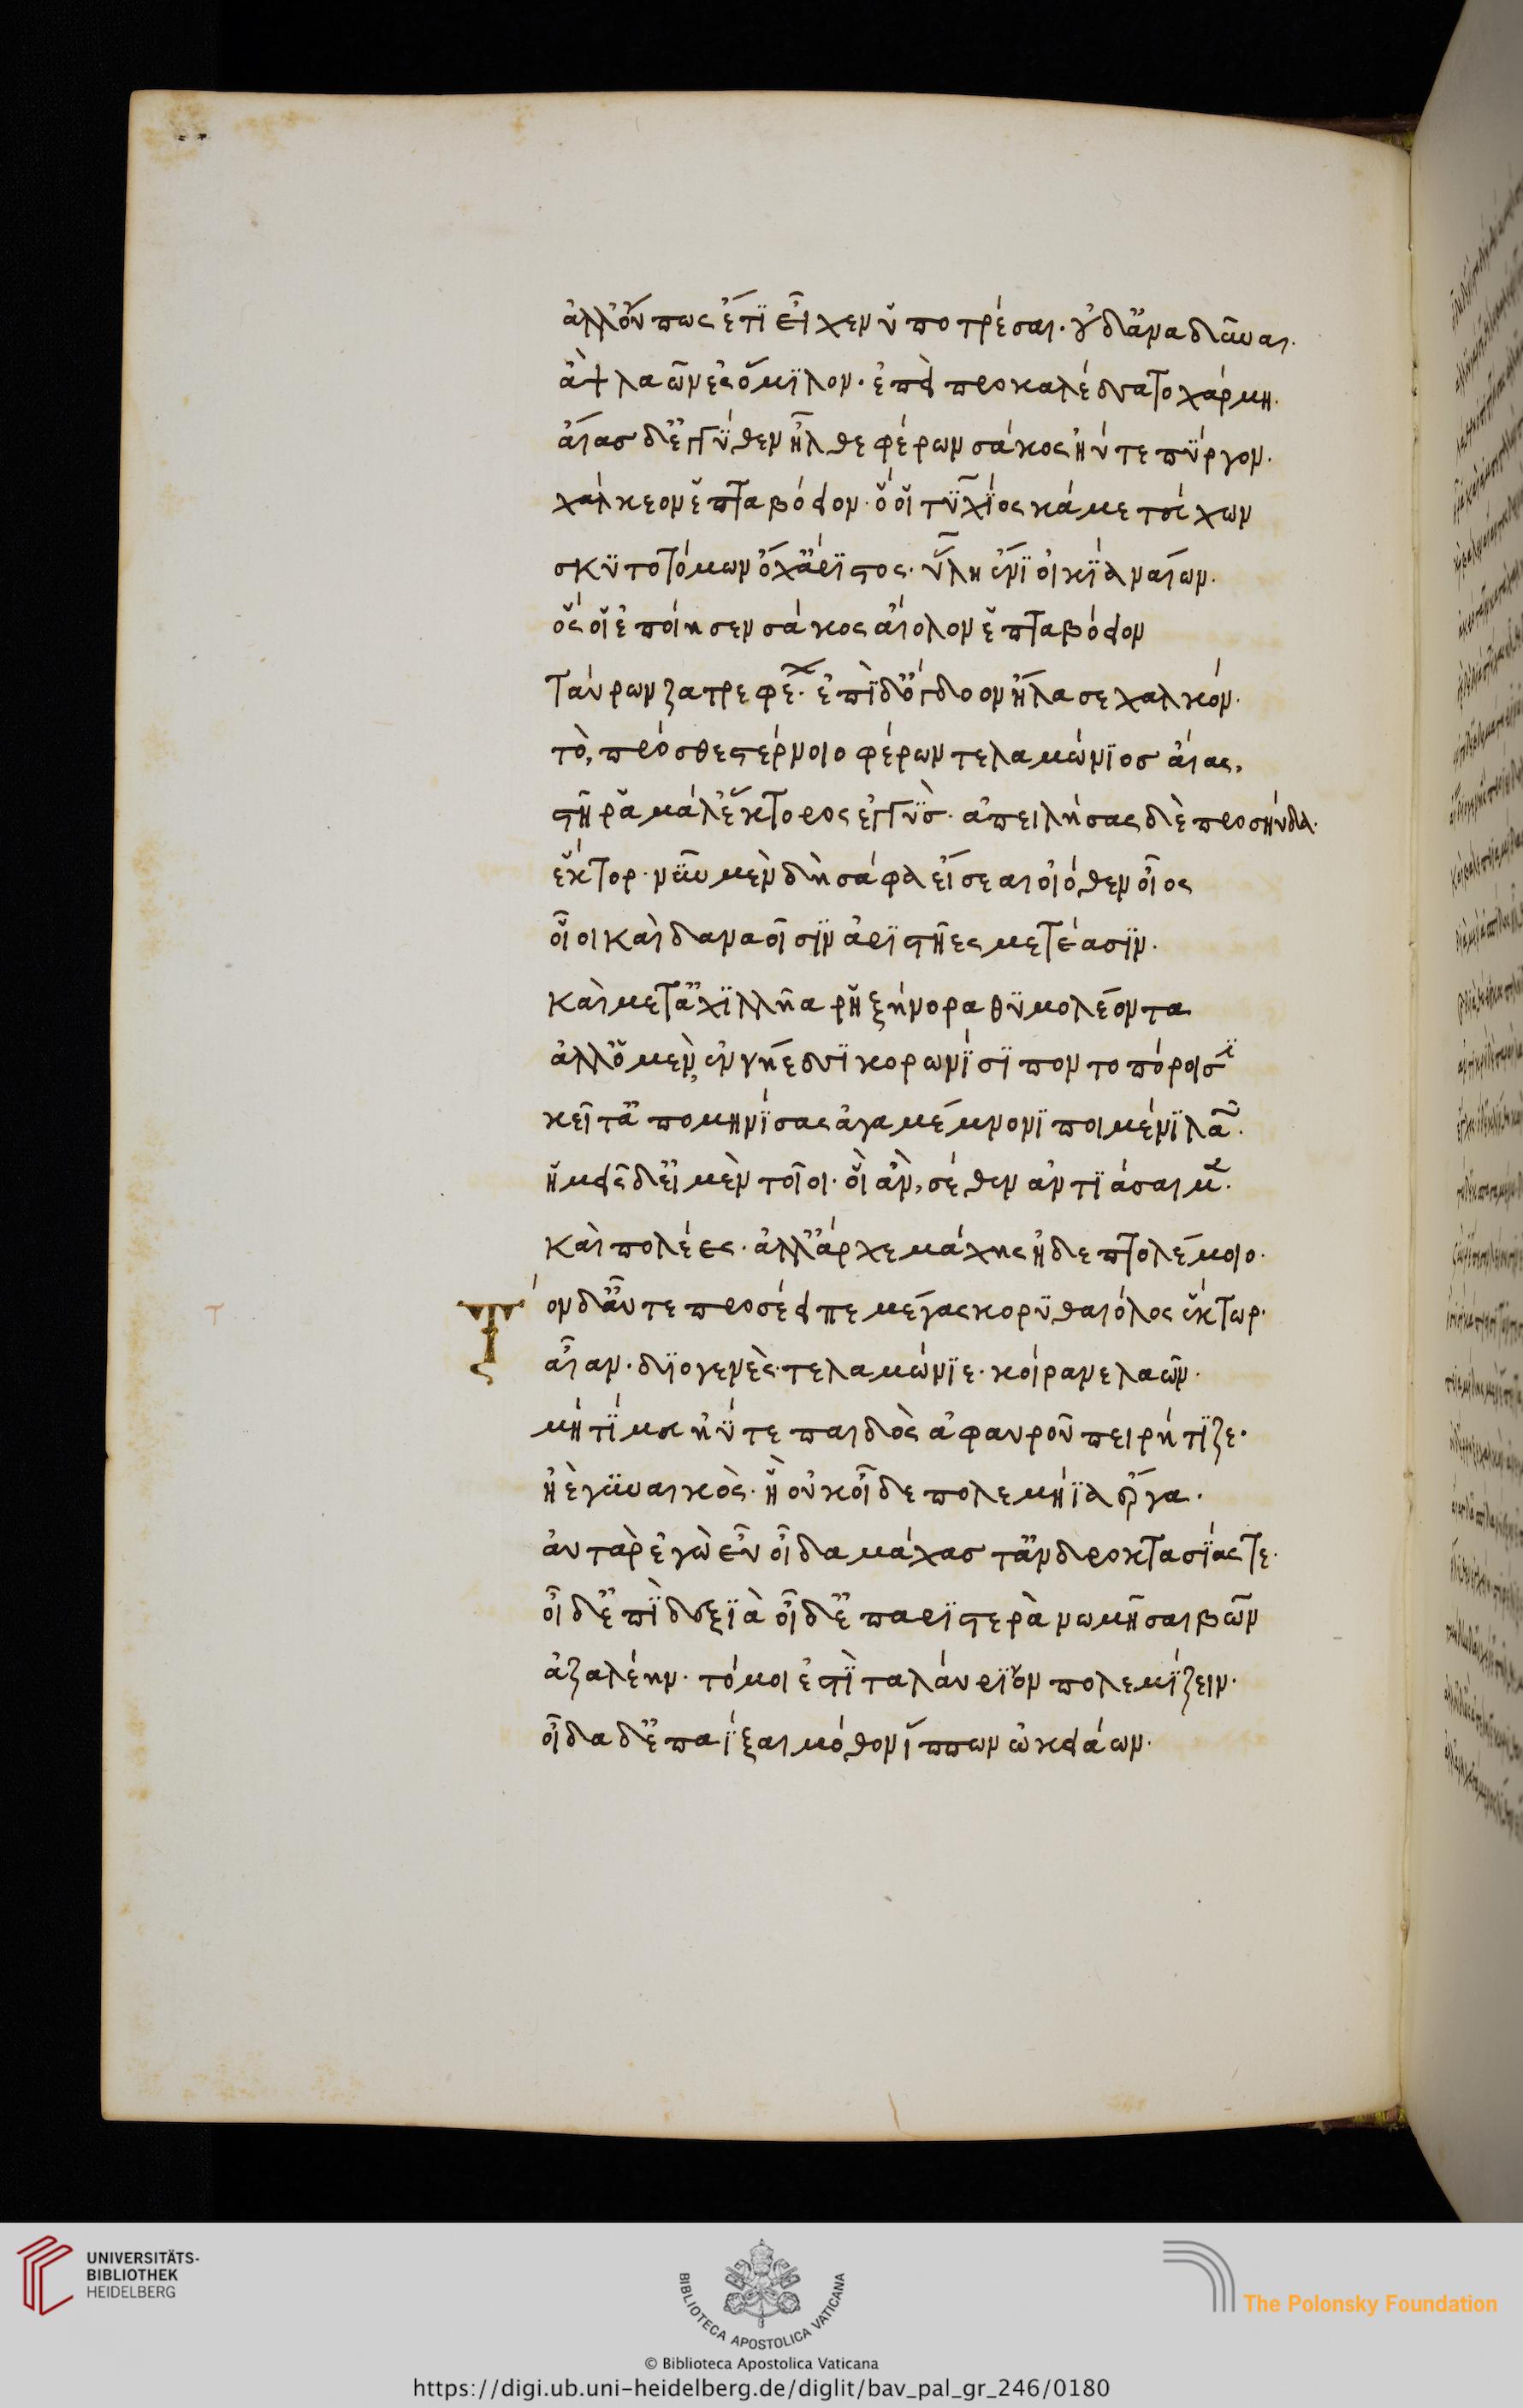 ἀλλ' οὔ πως ἔτϊ εἶχεν ὑποτρέσαι· οὐδ' ἀναδῦναι·
ἂψ λαῶν ἐς ὅμϊλον· ἐπεὶ προκαλέσσατο χάρμη·
αἴας δ' ἐγγύθεν ἦλθε φέρων σάκος ἠύτε πύργον·
χάλκεον ἑπταβόειον· ὅ οἱ τϋχίος κάμε τεύχων
σκϋτοτόμων ὄχ' ἄρϊστος· ὕλη ἔνϊ οἰκία ναίων·
ὅς οἱ ἐποίησεν σάκος αἰόλον ἑπταβόειον
ταύρων ζατρεφέων· ἐπὶ δ' ὄγδοον ἤλασε χαλκόν·
τὸ, πρόσθε στέρνοιο φέρων τελαμώνϊος αἴας,
στῆ ῥα μάλ' ἕκτορος ἐγγὺς· ἀπειλήσας δὲ προσηύδα·
ἕκτορ· νῦν μὲν δὴ σάφα εἴσεαι οἰόθεν οἶος
οἷοι καὶ δαναοῖσϊν ἀρϊστῆες μετέασϊν·
καὶ μετ' ἀχϊλλῆα ῥηξήνορα θϋμολέοντα
ἀλλ' ὁ μὲν, ἐν νήεσσϊ κορωνίσϊ ποντοπόροισϊ
κεῖτ' ἀπομηνίσας ἀγαμέμνονϊ ποιμένϊ λαῶν·
ἡμεῖς δ' εἰμὲν τοῖοι· οἳ ἂν, σέθεν ἀντϊάσαιμεν·
καὶ πολέες· ἀλλ' ἄρχε μάχης ἠδὲ πτολέμοιο·
Τὸν δ' αὖτε προσέειπε μέγας κορϋθαιόλος ἕκτωρ·
αἶαν· δϊογενὲς· τελαμώνϊε· κοίρανε λαῶν·
μή τί μευ ἠΰτε παιδὸς ἀφαυροῦ πειρήτϊζε·
ἠὲ γϋναικὸς· ἣ οὐκ οἶδε πολεμήϊα ἔργα·
αὐτὰρ ἐγὼ εὖ οἶδα μάχας τ' ἀνδροκτασίας τε·
οἶδ' ἐπὶ δεξϊὰ οἶδ' ἐπ' ἀρϊστερὰ νωμῆσαι βῶν
ἀζαλέην· τό μοι ἐστὶ ταλαύρϊνον πολεμίζειν·
οἶδα δ' ἐπαΐξαι μόθον ἵππων ὠκειάων·
UNIVERSITÄTS-
BIBLIOTHEK
HEIDELBERG
BIBLIOTECA APOSTOLICA VATICANA
The Polonsky Foundation
© Biblioteca Apostolica Vaticana
https://digi.ub.uni-heidelberg.de/diglit/bav_pal_gr_246/0180